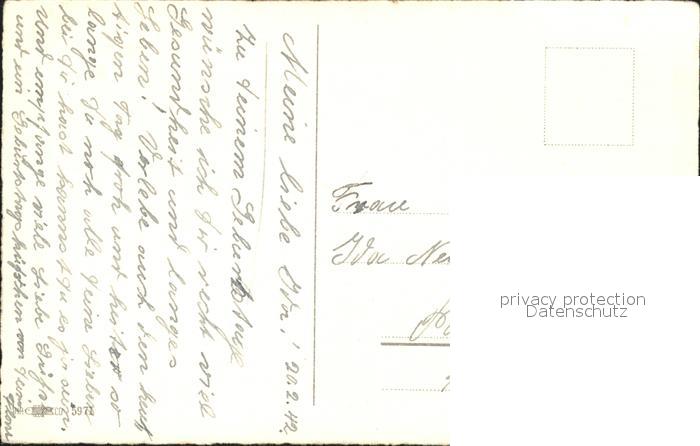 Meine liebe Ida! 20.2.42.
Zu Deinem Geburtstage
wünsche ich Dir recht viel
Gesundheit und langes
Leben! Verlebe auch den heu-
tigen Tag froh und heiter so
lange Du noch alle Deine Lieben
bei Dir hast kannst Du es ja sein.
Und empfange viele Liebe Grüße
und ein Geburtstagsküßchen von Deiner
Frau
Ida
5971
privacy protection
Datenschutz